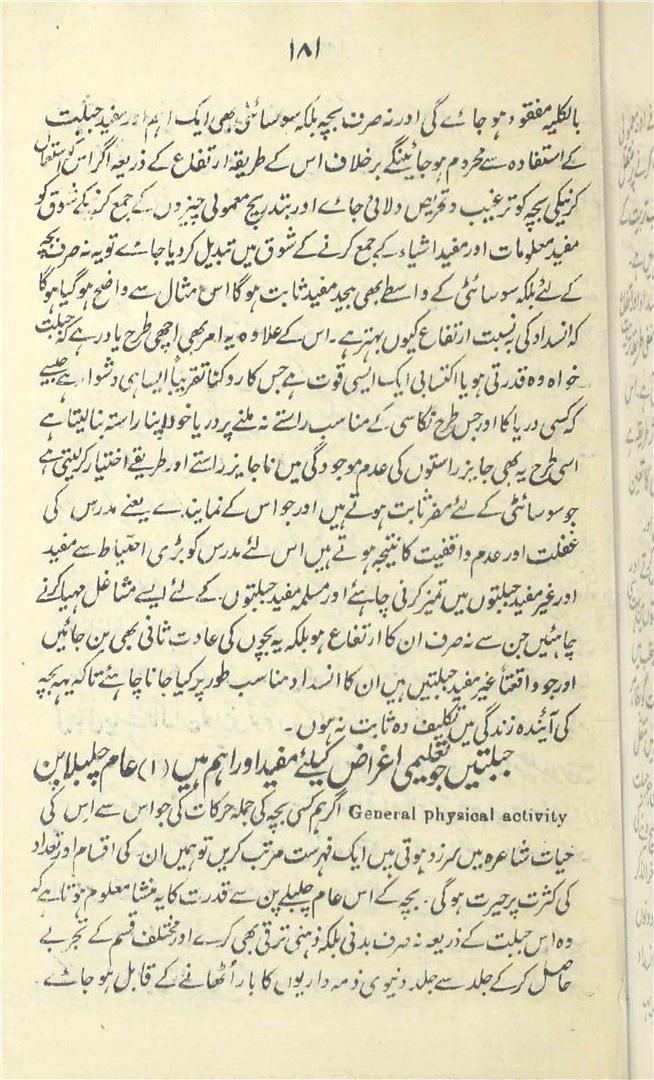 ۱۸۱
بالکلیہ مفقود ہو جائے گی اور نہ صرف بچہ بلکہ سوسائٹی بھی ایک اہم اور مفید جبلت
کے استفادہ سے محروم ہو جائینگے برخلاف اس کے طریقۂ ارتفاع کے ذریعہ اگر اس کو استعمال
کرنیکی بچہ کو ترغیب و تحریص دلائی جائے اور بتدریج معمولی چیزوں کے جمع کرنیکے شوق کو
مفید معلومات اور مفید اشیاء کے جمع کرنے کے شوق میں تبدیل کر دیا جائے تو یہ نہ صرف بچہ
کے لئے بلکہ سوسائٹی کے واسطے بھی بیحد مفید ثابت ہوگا اس مثال سے واضح ہو گیا ہوگا
کہ انسداد کی بہ نسبت ارتفاع کیوں بہتر ہے۔ اس کے علاوہ یہ امر بھی اچھی طرح یاد رہے کہ جبلت
خواہ وہ قدرتی ہو یا اکتسابی ایک ایسی قوت ہے جس کا روکنا تقریباً ایسا ہی دشوار ہے جیسے
کہ کسی دریا کا اور جس طرح نکاسی کے مناسب راستے نہ ملنے پر دریا خود اپنا راستہ بنا لیتا ہے
اسی طرح یہ بھی جایز راستوں کی عدم موجودگی میں ناجایز راستے اور طریقے اختیار کر لیتی ہے
جو سوسائٹی کے لئے مضر ثابت ہوتے ہیں اور جو اس کے نمایندے یعنے مدرس کی
غفلت اور عدم واقفیت کا نتیجہ ہوتے ہیں اس لئے مدرس کو بڑی احتیاط سے مفید
اور غیر مفید جبلتوں میں تمیز کرنی چاہئے اور مسلمہ مفید جبلتوں کے لئے ایسے مشاغل مہیا کرنے
چاہئیں جن سے نہ صرف ان کا ارتفاع ہو بلکہ یہ بچوں کی عادت ثانی بھی بن جائیں
اور جو واقعتاً غیر مفید جبلتیں ہیں ان کا انسداد مناسب طور پر کیا جانا چاہئے تاکہ یہہ بچہ
کی آئندہ زندگی میں تکلیف دہ ثابت نہ ہوں۔
جبلتیں جو تعلیمی اغراض کیلئے مفید اور اہم ہیں (۱) عام چلبلاپن
General physical activity اگر ہم کسی بچہ کی جملہ حرکات کی جو اس سے اس کی
حیات شاعرہ میں سرزد ہوتی ہیں ایک فہرست مرتب کریں تو ہمیں ان کی اقسام اور تعداد
کی کثرت پر حیرت ہوگی۔ بچہ کے اس عام چلبلے پن سے قدرت کا یہ منشا معلوم ہوتا ہے کہ
وہ اس جبلت کے ذریعہ نہ صرف بدنی بلکہ ذہنی ترقی بھی کرے اور مختلف قسم کے تجربے
حاصل کر کے جلد سے جلد دنیوی ذمہ داریوں کا بار اُٹھانے کے قابل ہو جائے۔